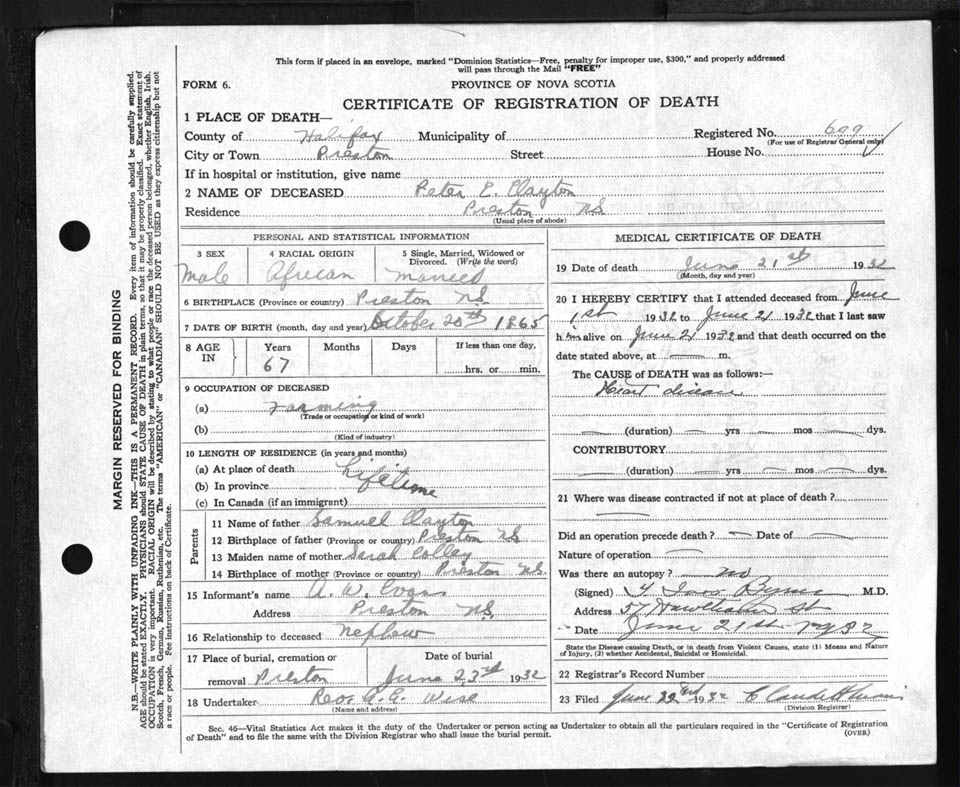 This form if placed in an envelope, marked "Dominion Statistics—Free, penalty for improper use, $300," and properly addressed
will pass through the Mail "FREE"
FORM 6.
PROVINCE OF NOVA SCOTIA
CERTIFICATE OF REGISTRATION OF DEATH
1 PLACE OF DEATH—
County of Halifax Municipality of Registered No. 609
(For use of Registrar General only)
City or Town Preston Street House No.
If in hospital or institution, give name
2 NAME OF DECEASED Peter E. Clayton
Residence Preston NS
(Usual place of abode)
PERSONAL AND STATISTICAL INFORMATION
3 SEX 4 RACIAL ORIGIN 5 Single, Married, Widowed or
Divorced. (Write the word)
Male African Married
6 BIRTHPLACE (Province or country) Preston NS.
7 DATE OF BIRTH (month, day and year) October 20th 1865
8 AGE
IN
Years Months Days If less than one day,
67
hrs. or min.
9 OCCUPATION OF DECEASED
(a) Farming
(Trade or occupation or kind of work)
(b)
(Kind of industry)
10 LENGTH OF RESIDENCE (in years and months)
(a) At place of death
(b) In province Lifetime
(c) In Canada (if an immigrant)
Parents
11 Name of father Samuel Clayton
12 Birthplace of father (Province or country) Preston NS
13 Maiden name of mother Sarah Colley
14 Birthplace of mother (Province or country) Preston NS.
15 Informant's name A. W. Evans
Address Preston NS.
16 Relationship to deceased Nephew
17 Place of burial, cremation or Date of burial
removal Preston June 23rd 1932
18 Undertaker Rev. A. E. Wise
(Name and address)
MEDICAL CERTIFICATE OF DEATH
19 Date of death June 21st 1932
(Month, day and year)
20 I HEREBY CERTIFY that I attended deceased from June
1st 1932 to June 21 1932 that I last saw
him alive on June 21 1932 and that death occurred on the
date stated above, at m.
The CAUSE of DEATH was as follows:—
Heart disease
(duration) yrs mos dys.
CONTRIBUTORY
(duration) yrs mos dys.
21 Where was disease contracted if not at place of death?
Did an operation precede death? Date of
Nature of operation
Was there an autopsy? no
(Signed) Byrne M.D.
Address 57 St
Date June 21st 1932
State the Disease causing Death, or in death from Violent Causes, state (1) Means and Nature
of Injury, (2) whether Accidental, Suicidal or Homicidal.
22 Registrar's Record Number
23 Filed June 22nd 1932
(Division Registrar)
Sec. 46—Vital Statistics Act makes it the duty of the Undertaker or person acting as Undertaker to obtain all the particulars required in the "Certificate of Registration
of Death" and to file the same with the Division Registrar who shall issue the burial permit.
(OVER)
MARGIN RESERVED FOR BINDING
N.B.—WRITE PLAINLY WITH UNFADING INK—THIS IS A PERMANENT RECORD. Every item of information should be carefully supplied.
AGE should be stated EXACTLY. PHYSICIANS should STATE CAUSE OF DEATH in plain terms, so that it may be properly classified. Exact statement of
OCCUPATION is very important. RACIAL ORIGIN will be described by stating to what people or race the deceased person belonged, whether English, Irish,
Scotch, French, German, Russian, Ruthenian, etc. The terms "AMERICAN" or "CANADIAN" SHOULD NOT BE USED as they express citizenship but not
a race or people. See instructions on back of Certificate.